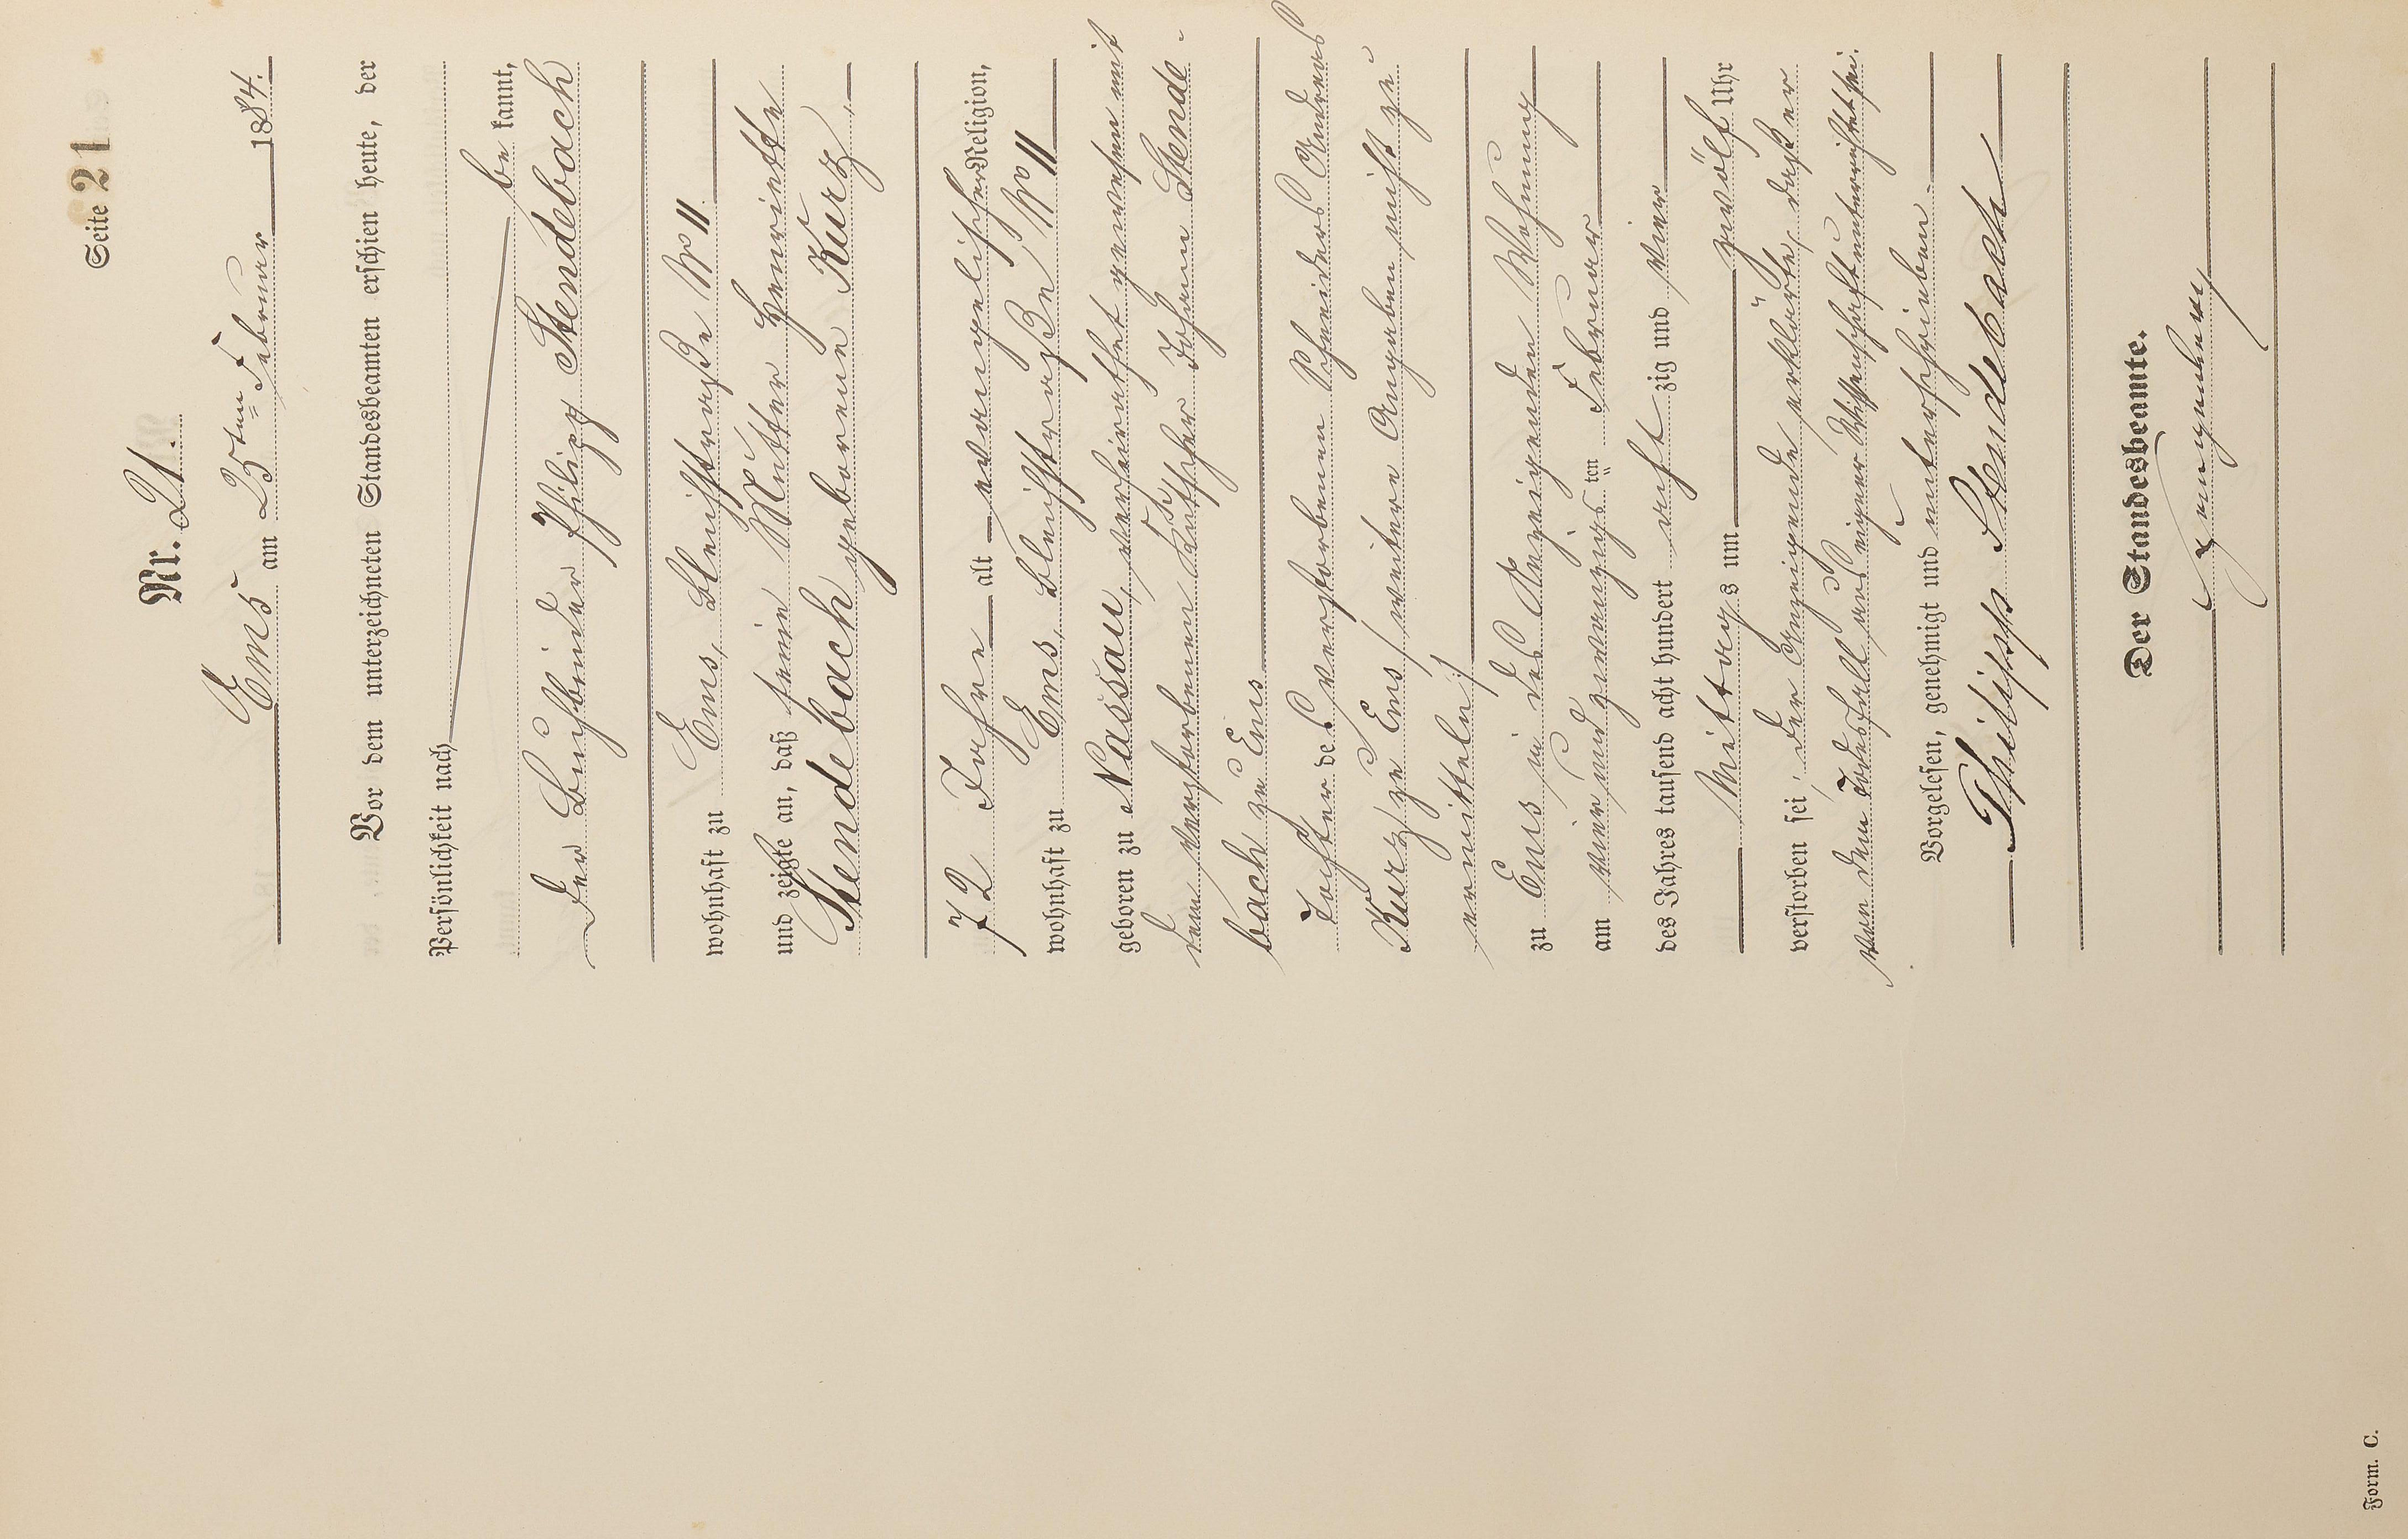 Seite 21
Nr. 21.
Ems am 25ten Februar 1884.
Vor dem unterzeichneten Standesbeamten erschien heute, der
Persönlichkeit nach
be kannt,
der Buchbinder Philipp Stendebach
wohnhaft zu Ems, Bleichstraße No 11.
und zeigte an, daß seine Mutter Henriette
Stendebach geborene Kurz,
72 Jahre alt evangelischer Religion,
wohnhaft zu Ems, Bleichstraße No 11
geboren zu Nassau, verheirathet gewesen mit
dem verstorbenen Kutscher Johann Stende-
bach zu Ems
Tochter des verstorbenen Schneiders Andreas
Kurz zu Ems (weitere Angaben nicht zu
ermitteln)
zu Ems in des Anzeigenden Wohnung
am vier und zwanzigsten Februar
des Jahres tausend acht hundert achtzig und vier
Mittags um zwölf Uhr
verstorben sei, der Anzeigende erklärte, daß er
von dem Todesfall aus eigener Wissenschaft unterrichtet sei.
Vorgelesen, genehmigt und unterschrieben.
Philipp Stendebach
Der Standesbeamte.
Form. C.